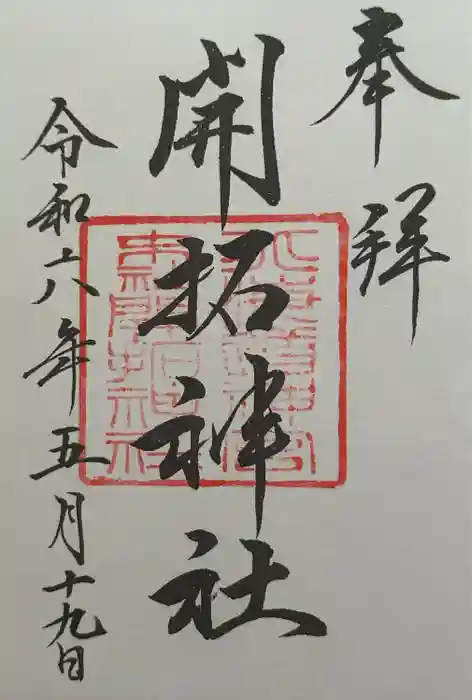 奉拝
開拓神社
令和六年五月十九日